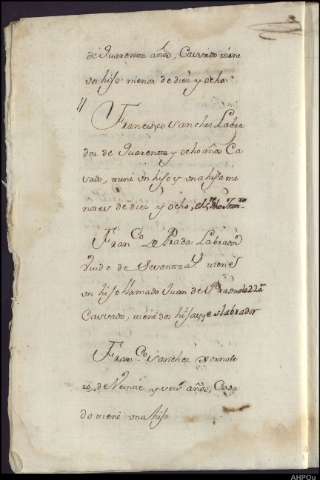 de Quarenta años, Cassado tiene
un hijo menor de diez y ocho
Francisco Sanchez Labra
dor de Quarenta y ocho años Ca
sado, tiene un hijo y una hija me
nores de diez y ocho,
Franco de Prada Labrador
Viudo de Sesenta y tiene
un hijo llamado Juan de Prada
Cassado, tiene dos hijas, es labrador
Franco Sanchez Jornale
ro de Veinte y seis años, Cas
do tiene una hija
AHPOu